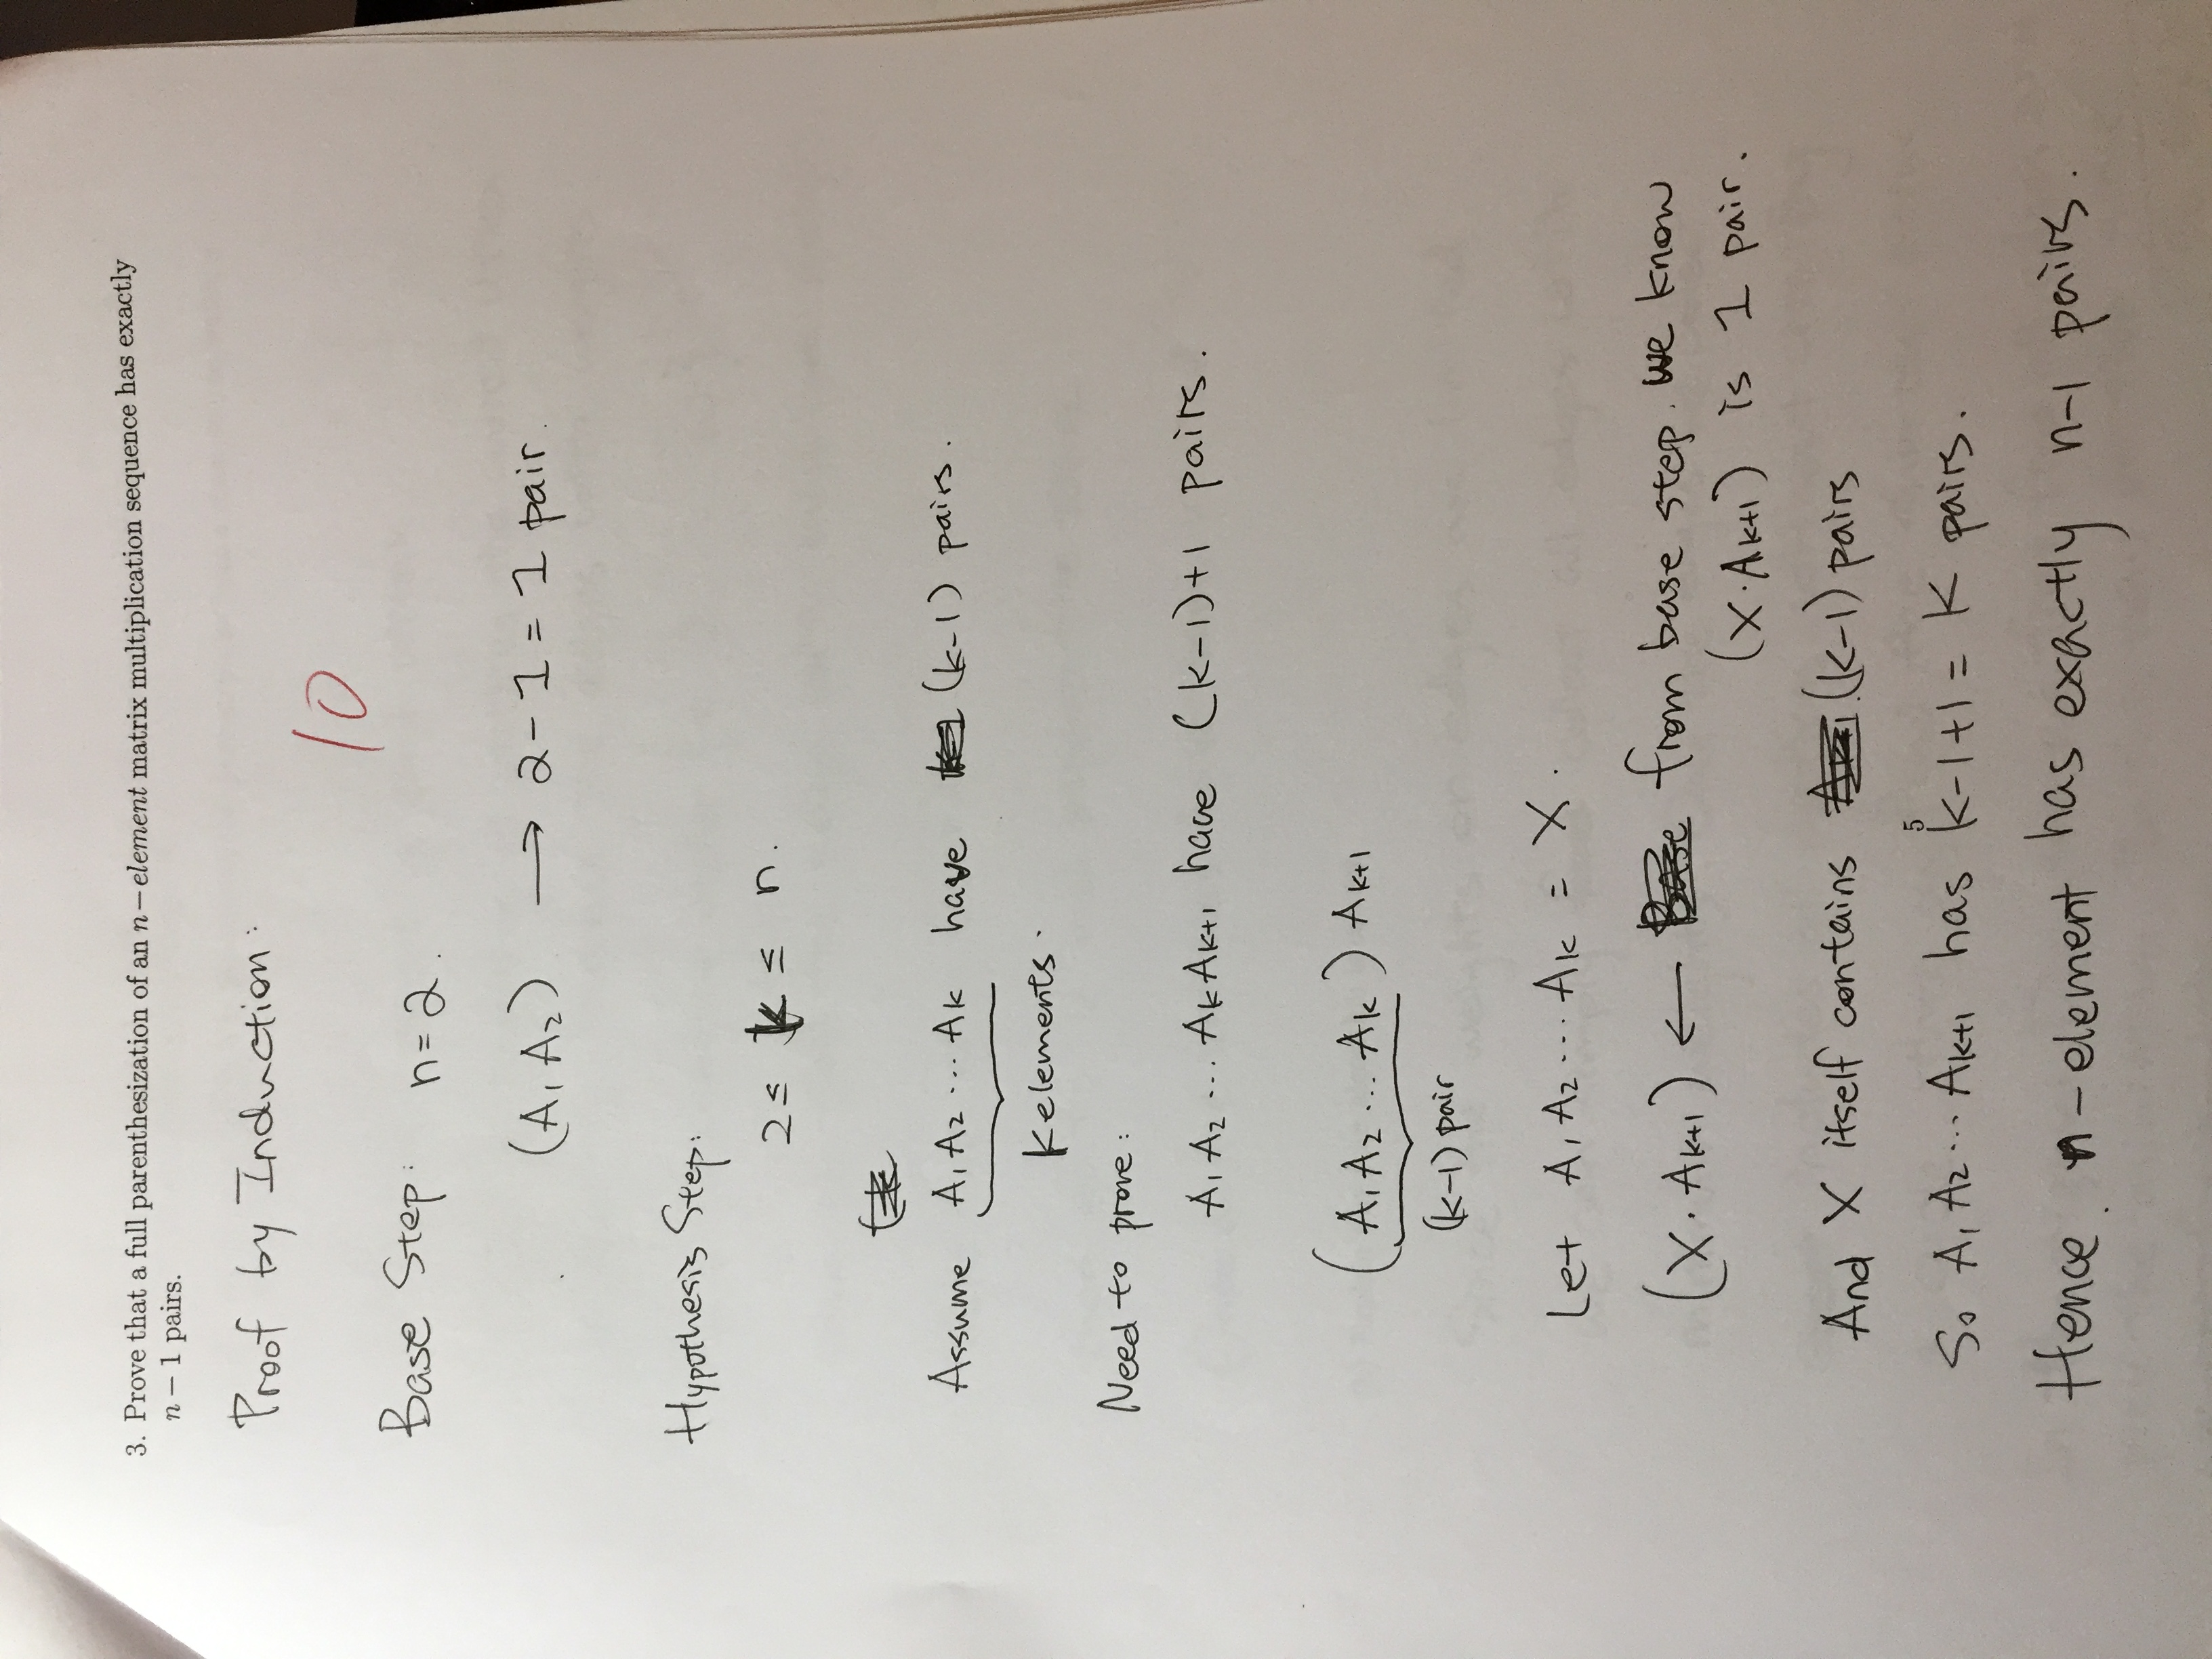 3. Prove that a full parenthesization of an n − element matrix multiplication sequence has exactly
n − 1 pairs.
Proof by Induction:
10
Base Step: n=2.
(A₁ A₂) → 2-1 = 1 pair.
Hypothesis Step:
2 ≤ k ≤ n.
Assume A₁ A₂ ... Ak have (k-1) pairs.
k elements.
Need to prove:
A₁ A₂ ... Ak Ak+1 have (k-1)+1 pairs.
(A₁ A₂ ... Ak) Ak+1
(k-1) pair
Let A₁ A₂ ... Ak = X.
(X · Ak+1) ← from base step. we know
(X · Ak+1) is 1 pair.
And X itself contains (k-1) pairs
5
So A₁ A₂ ... Ak+1 has k-1+1 = K pairs.
Hence. n-element has exactly n-1 pairs.